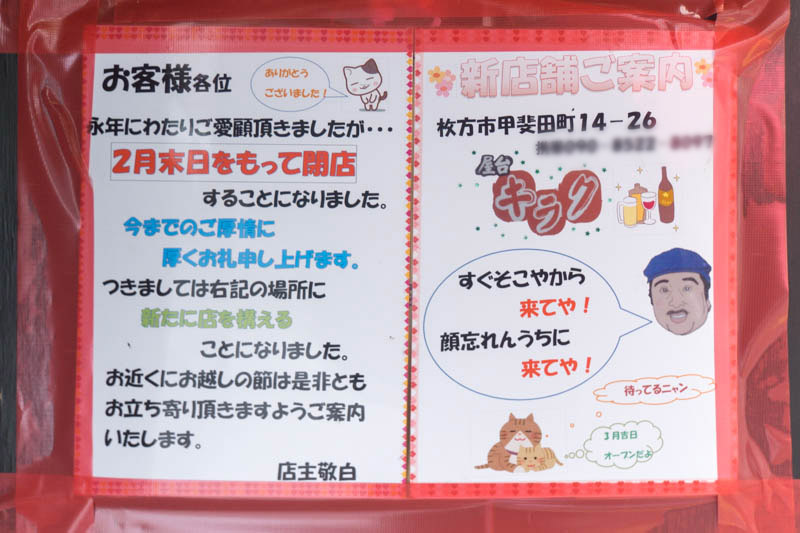 お客様各位
ありがとう
ございました！
永年にわたりご愛顧頂きましたが・・・
2月末日をもって閉店
することになりました。
今までのご厚情に
厚くお礼申し上げます。
つきましては右記の場所に
新たに店を構える
ことになりました。
お近くにお越しの節は是非とも
お立ち寄り頂きますようご案内
いたします。
店主敬白
新店舗ご案内
枚方市甲斐田町14－26
屋台
キラク
すぐそこやから
来てや！
顔忘れんうちに
来てや！
待ってるニャン
3月吉日
オープンだよ